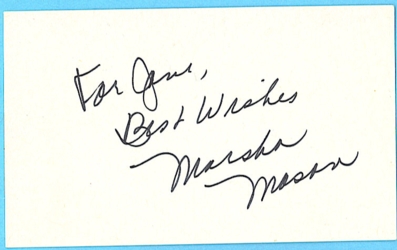 For Jane,
Best Wishes
Marsha
Mason